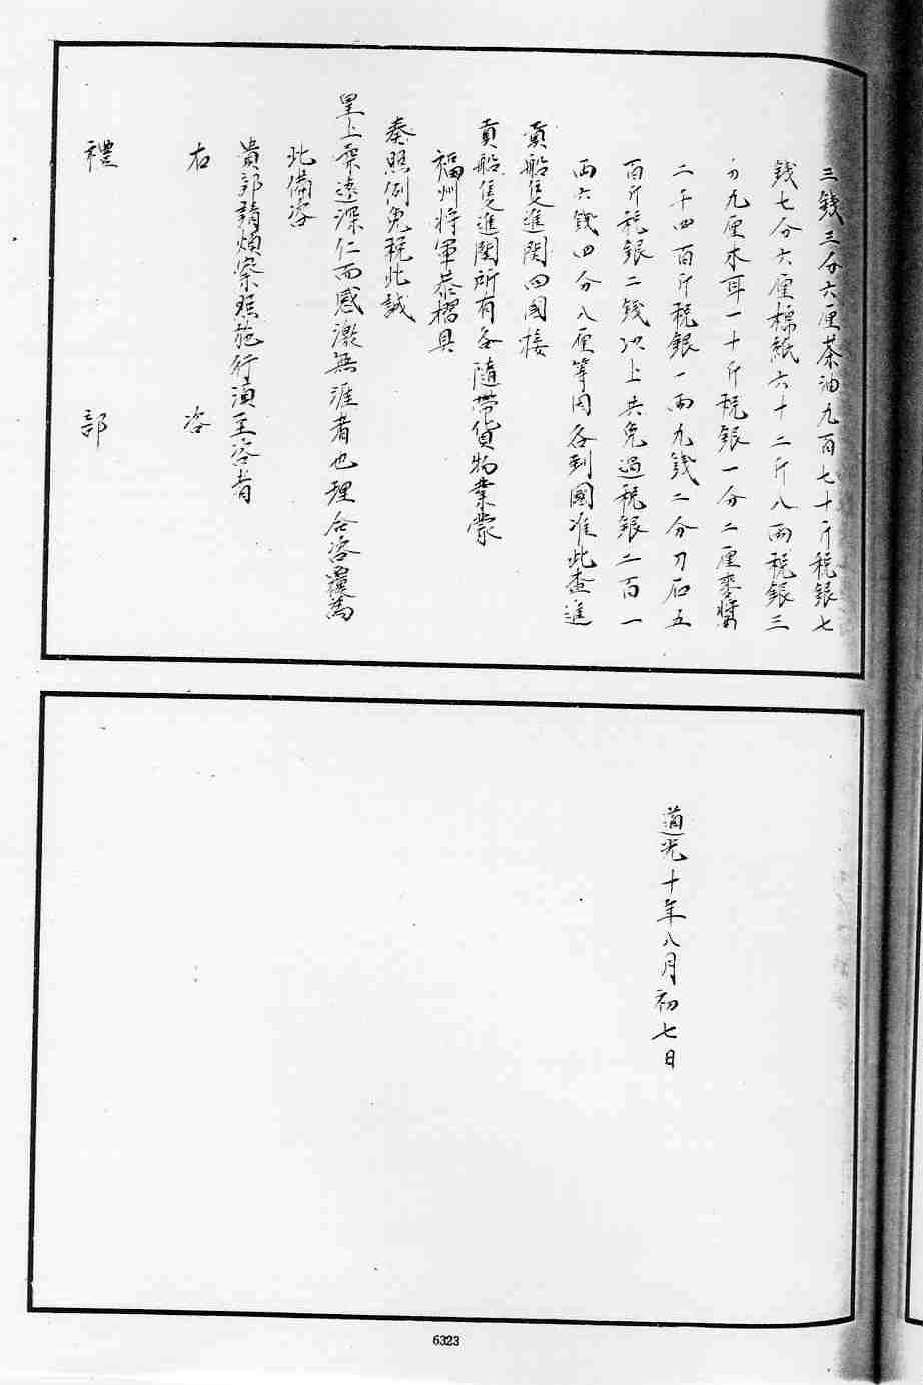 三錢三分六厘茶油九百七十斤稅銀七
錢七分六厘棉紙六十二斤八兩稅銀三
分九厘木耳一十斤稅銀一分二厘麥醬
二千四百斤稅銀一兩九錢二分刀石五
百斤稅銀二錢以上共免過稅銀二百一
兩六錢四分八厘等因各到國准此查進
貢船隻進關回國接
貢船隻進關所有各隨帶貨物業蒙
福州將軍恭摺具
奏照例免稅此誠
皇上柔遠深仁而感激無涯者也理合咨覆為
此備咨
貴部請煩察照施行須至咨者
右 咨
禮 部
道光十年八月初七日
6323